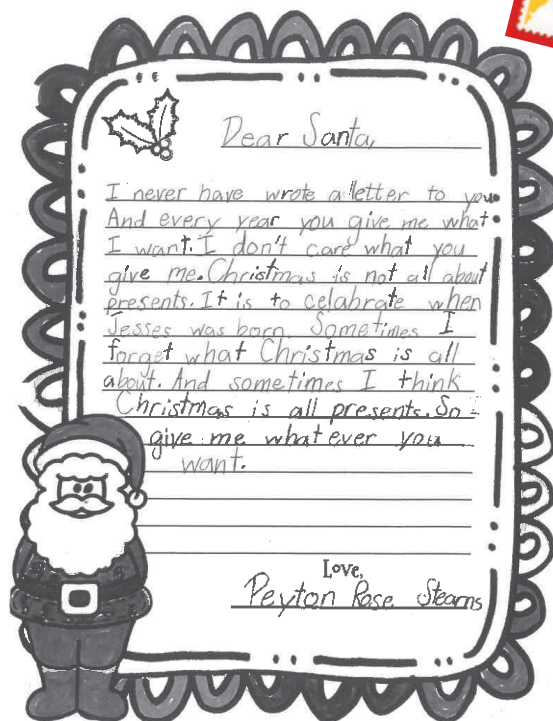 Dear Santa,
I never have wrote a letter to you.
And every year you give me what
I want. I don't care what you
give me. Christmas is not all about
presents. It is to celabrate when
Jesses was born. Sometimes I
forget what Christmas is all
about. And sometimes I think
Christmas is all presents. So
give me what ever you
want.
Love,
Peyton Rose Stearns